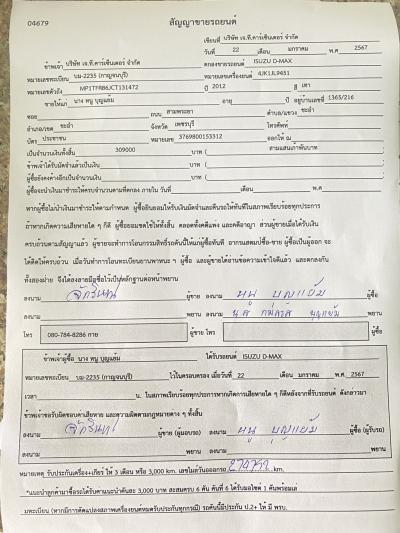 04679
สัญญาขายรถยนต์
เขียนที่ บริษัท เจ.ที.คาร์เซ็นเตอร์ จำกัด
วันที่ 22 เดือน มกราคม พ.ศ 2567
ข้าพเจ้า บริษัท เจ.ที.คาร์เซ็นเตอร์ จำกัด ตกลงขายรถยนต์ ISUZU D-MAX
หมายเลขทะเบียน บม-2235 (กาญจนบุรี) หมายเลขเครื่องยนต์ 4JK1JL9451
หมายเลขตัวถัง MP1TFR86JCT131472 ปี 2012 สี เทา
ขายให้แก่ นาง หนู บุญแย้ม อายุ ปี อยู่บ้านเลขที่ 1365/216
ซอย ถนน สามพระยา ตำบล/แขวง ชะอำ
อำเภอ/เขต ชะอำ จังหวัด เพชรบุรี โทรศัพท์
บัตร ประชาชน หมายเลข 3769800153312 ออกให้ ณ
เป็นจำนวนเงินทั้งสิ้น 309000 บาท ( สามแสนเก้าพันบาท
ข้าพเจ้าได้รับมัดจำแล้วเป็นเงิน บาท (
ผู้ซื้อยังคงค้างอีกเป็นจำนวนเงิน บาท (
ผู้ซื้อจะนำเงินมาชำระให้ครบจำนวนตามที่ตกลง ภายใน วันที่ เดือน พ.ศ
หากผู้ซื้อไม่นำเงินมาชำระให้ตามกำหนด ผู้ซื้อยินยอมให้ริบเงินมัดจำและคืนรถให้ทันทีในสภาพเรียบร้อยทุกประการ
ถ้าหากเกิดความเสียหายใด ๆ ก็ดี ผู้ซื้อยอมชดใช้ให้ทั้งสิ้น ตลอดทั้งคดีแพ่ง และคดีอาญา ส่วนผู้ขายเมื่อได้รับเงิน
ครบถ้วนตามสัญญาแล้ว ผู้ขายจะทำการโอนกรรมสิทธิ์รถคันนี้ให้แก่ผู้ซื้อทันที จากแสตมป์ซื้อ-ขาย ผู้ซื้อเป็นผู้ออก จะ
ได้คิดให้ครบถ้วน เมื่อวันทำการโอนทะเบียนยานพาหนะ ฯ ผู้ซื้อ และผู้ขายได้อ่านข้อความเข้าใจดีแล้ว และตกลงกัน
ทั้งสองฝ่าย จึงได้ลงลายมือชื่อไว้เป็นหลักฐานต่อหน้าพยาน
ลงนาม ผู้ขาย ลงนาม หนู บุญแย้ม ผู้ซื้อ
ลงนาม พยาน ลงนาม บุญแย้ม พยาน
โทร 080-784-8286 กาย ผู้ขาย โทร ผู้ซื้อ
ข้าพเจ้าผู้ซื้อ นาง หนู บุญแย้ม ได้รับรถยนต์ ISUZU D-MAX
หมายเลขทะเบียน บม-2235 (กาญจนบุรี) ไว้ในครอบครอง เมื่อวันที่ 22 เดือน มกราคม พ.ศ 2567
เวลา น. ในสภาพเรียบร้อยทุกประการหากเกิดการเสียหายใด ๆ ก็ดีหลังจากที่รับรถยนต์ ดังกล่าวมา
ข้าพเจ้าขอรับผิดชอบค่าเสียหาย และความผิดตามกฎหมายต่าง ๆ ทั้งสิ้น
ลงนาม ผู้ขาย (ผู้มอบรถ) ลงนาม หนู บุญแย้ม ผู้ซื้อ (ผู้รับรถ)
ลงนาม พยาน ลงนาม พยาน
หมายเหตุ รับประกันเครื่อง+เกียร์ ให้ 3 เดือน หรือ 3,000 km. เลขไมล์วันออกรถ km.
*แนะนำลูกค้ามาซื้อรถได้รับค่าแนะนำคันละ 3,000 บาท สะสมครบ 6 คัน คันที่ 6 ได้รับมอไซค์ 1 คันพร้อมเล
มทะเบียน (หากมีการดัดแปลงสภาพเครื่องยนต์หมดรับประกันทุกกรณี) รถคันนี้มีประกัน ป.2+ ให้ มี พรบ.